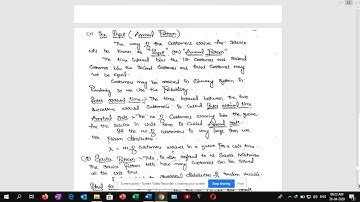 (1) The Input (Arrival Pattern)
The way of the customers arrive for service
will be known as "Input" (or) "Arrival Pattern"
The time interval b/w the 1st customer and second
customer b/w the second customer and third customer may
not be equal.
Customers may be arrived in Queuing system in
Randomly so we use the Probability.
Inter arrival time :- The time interval between the two
successive arrival customers is called Inter arrival time
Arrival rate :- The no. of customers entering into the queue
for the service in unit time is called Arrival rate.
If the no. of customers is very large then we
use Poisson distribution.
λ - no. of customers in a queue for a unit time.
(2) Service Pattern :- This is also referred to as Service Mechanism
The service pattern tells how many customers can be served
at the unit time
distribution of random
Stop sharing
Hide
09:22 AM
26-06-2020